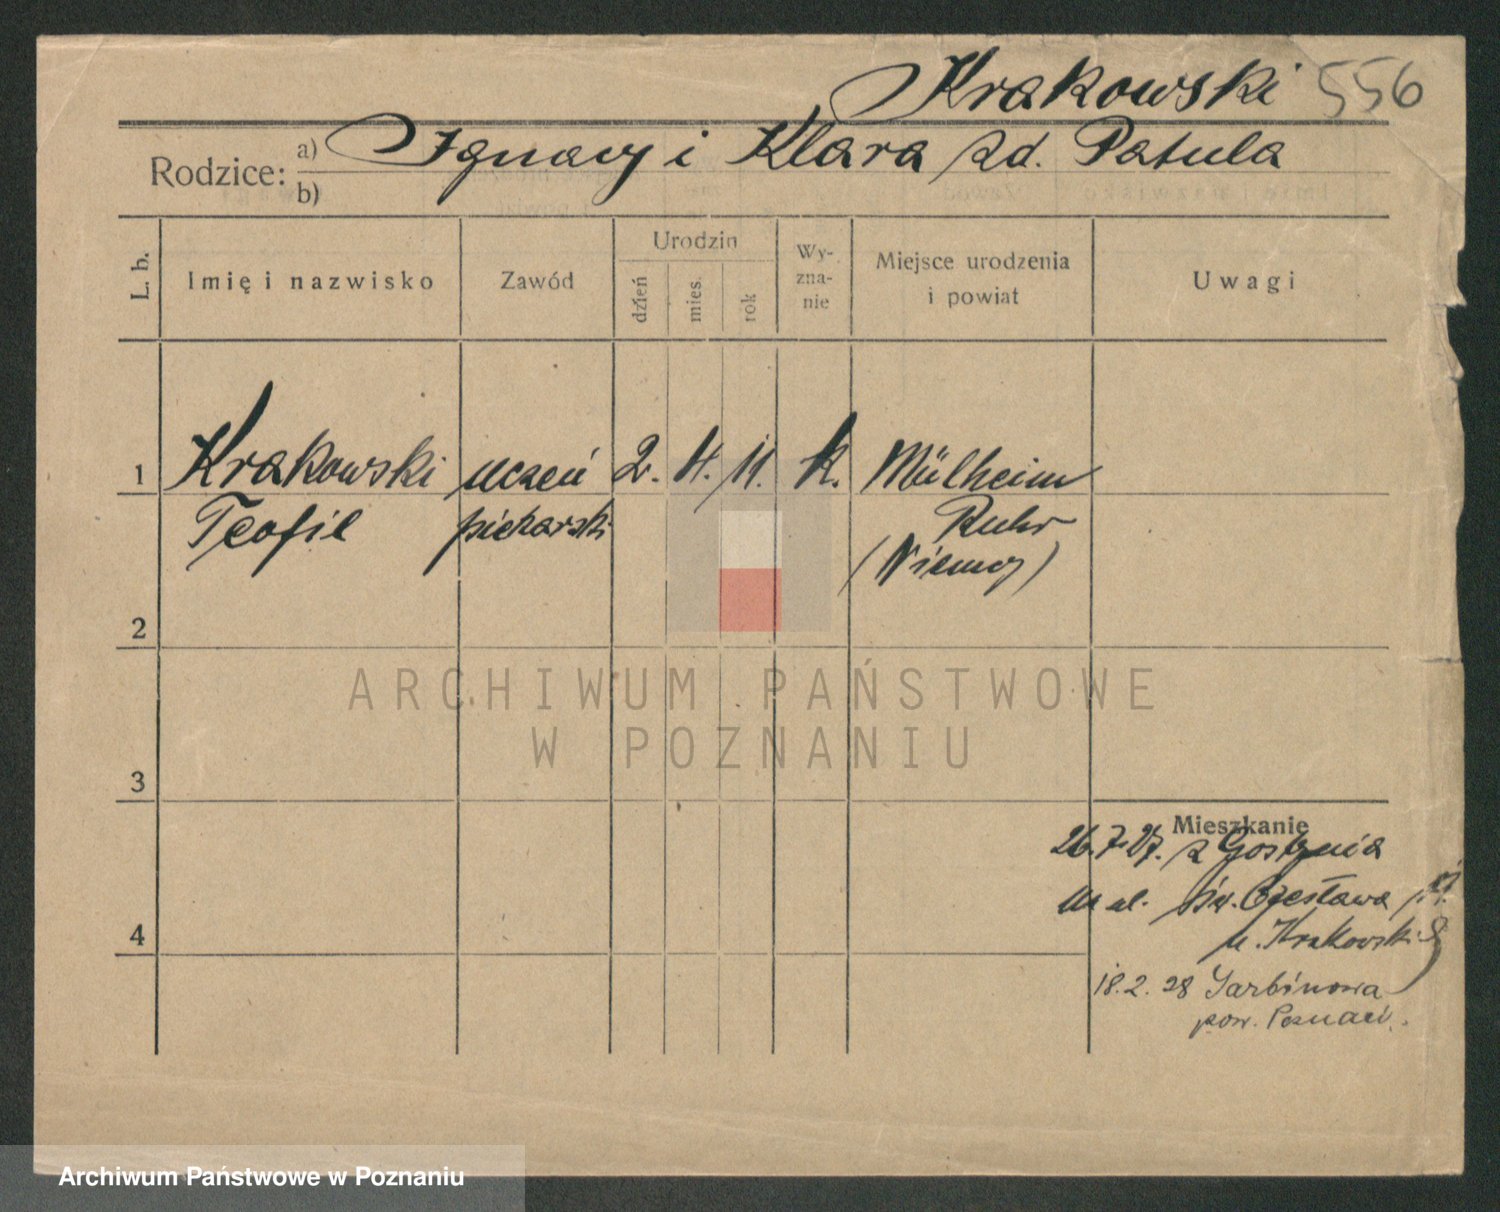 Krakowski 556
Rodzice: a) Ignacy i Klara zd. Patula
b)
L. b. Imię i nazwisko Zawód Urodzin dzień mies. rok Wy-zna-nie Miejsce urodzenia i powiat Uwagi
1 Krakowski uczeń 2. 4. 11. k. Mülheim
Teofil piekarski Ruhr
(Niemcy)
2
ARCHIWUM PAŃSTWOWE
W POZNANIU
3
Mieszkanie
26.7.27. z Gostynia
na ul. św. Czesława
u. Krakowski
4
18.2.28 Garbinowa
pow. Poznań.
Archiwum Państwowe w Poznaniu